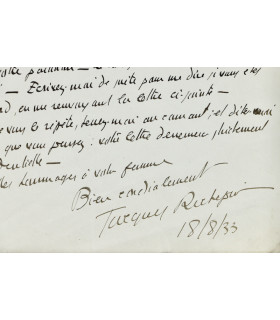 votre
i — Ecrivez-moi de suite pour me dire si vous êtes
d, en me renvoyant la lettre ci-jointe —
e vous le répète, tenez-moi au courant, et dites-moi
que vous pensez : votre lettre demeure strictement
dentielle —
les hommages à votre femme
Bien cordialement
Jacques Richepin
18/8/33